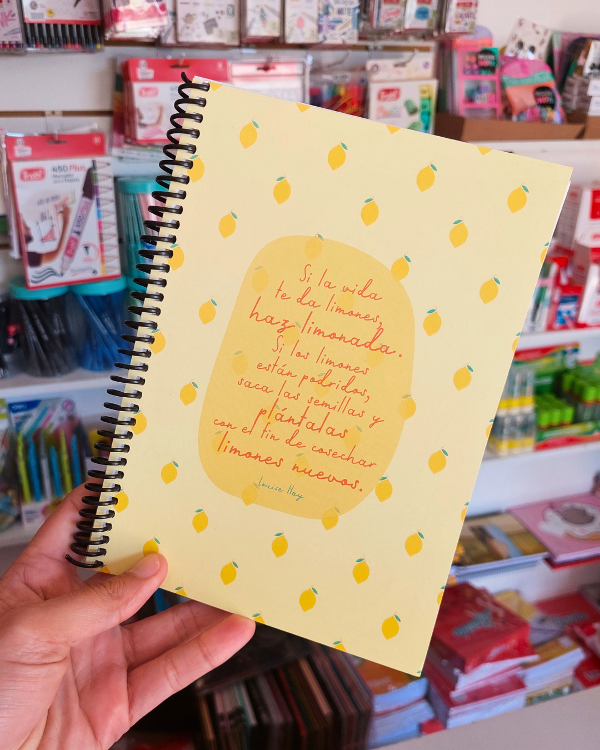 Si la vida
te da limones,
haz limonada.
Si los limones
están podridos,
saca las semillas y
plántalas
con el fin de cosechar
limones nuevos.
Louise Hay